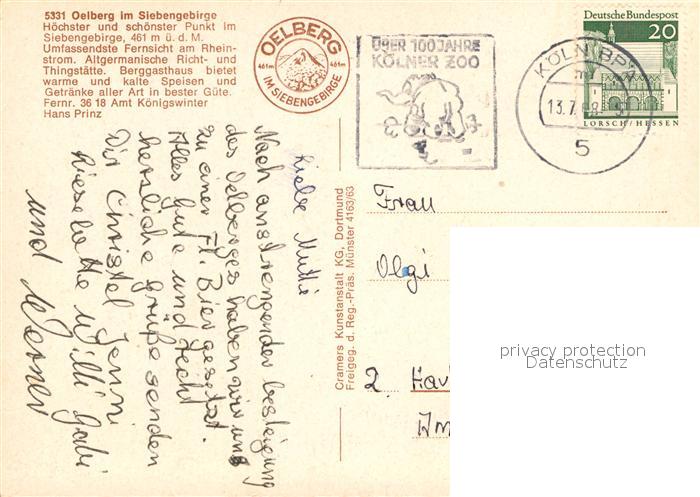 5331 Oelberg im Siebengebirge
Höchster und schönster Punkt im
Siebengebirge, 461 m ü. d. M.
Umfassendste Fernsicht am Rhein-
strom. Altgermanische Richt- und
Thingstätte. Berggasthaus bietet
warme und kalte Speisen und
Getränke aller Art in bester Güte.
Fernr. 36 18 Amt Königswinter
Hans Prinz
OELBERG
461m 461m
IM SIEBENGEBIRGE
ÜBER 100 JAHRE
KÖLNER ZOO
KÖLN BPA
13.7.
5
Deutsche Bundespost
20
LORSCH/HESSEN
Liebe Mutti
Nach anstrengender besteigung
des Oelberges haben wir uns
zu einer Fl. Bier gesetzt.
Alles Gute und recht
herzliche Grüße senden
Dir Christel Jenni
Lieselotte Willi Gabi
und Werner
Cramers Kunstanstalt KG, Dortmund
Freigeg. d. Reg.-Präs. Münster 4163/63
Frau
Olgi
2
privacy protection
Datenschutz